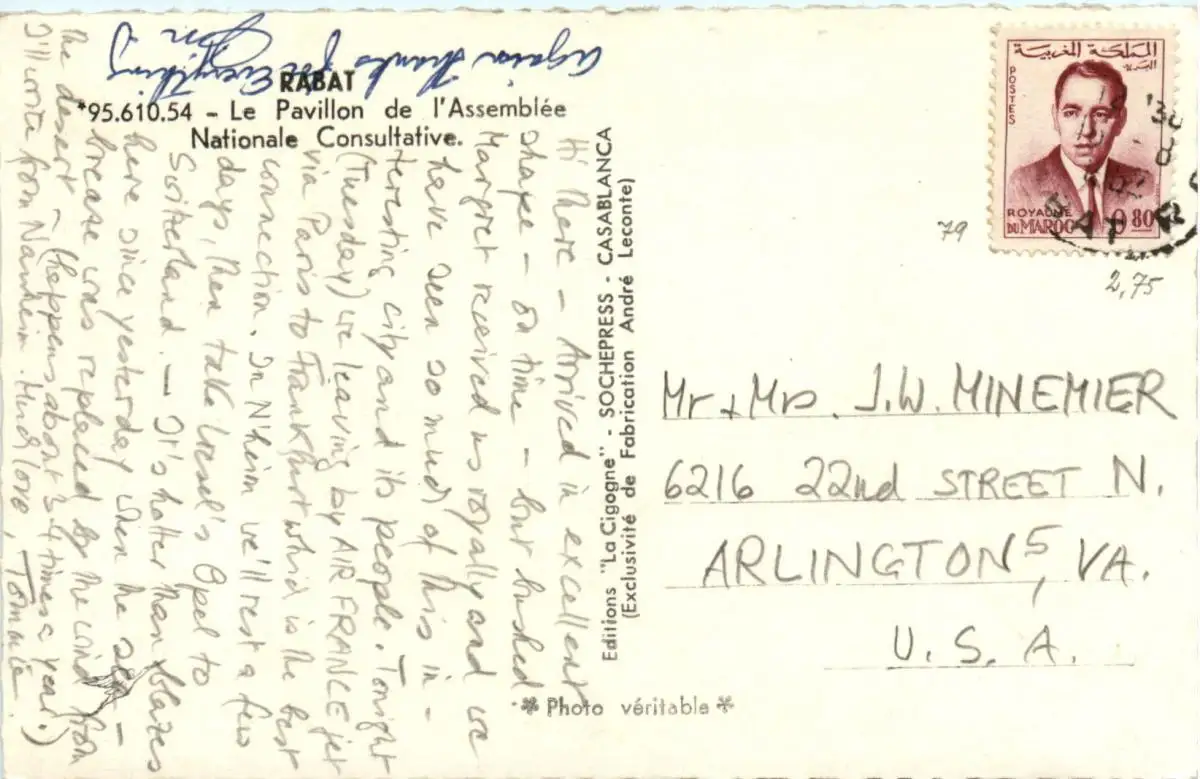 RABAT
*95.610.54 – Le Pavillon de l'Assemblée
Nationale Consultative.
Hi there – Arrived in excellent
shape – on time – but bushed
Margret received us royally and we
have seen so much of this in-
teresting city and its people. Tonight
(Tuesday) we leaving by AIR FRANCE jet
via Paris to Frankfurt which is the best
connection. In N'heim we'll rest a few
days, then take Liesel's Opel to
Switzerland. – It's hotter than blazes
here since yesterday when the sea –
breease was replaced by the wind from
the desert – (happens about 3-4 times a year.)
I'll write from Nauheim. Much love, Tommie.
Again Thanks for Everything
Jon
Editions "La Cigogne" - SOCHEPRESS - CASABLANCA
(Exclusivité de Fabrication André Leconte)
Photo véritable
المملكة المغربية
البريد
POSTES
ROYAUME
DU MAROC
0.80
79
2,75
Mr + Mrs. J.W. MINEMIER
6216 22nd STREET N.
ARLINGTON 5, VA.
U. S. A.